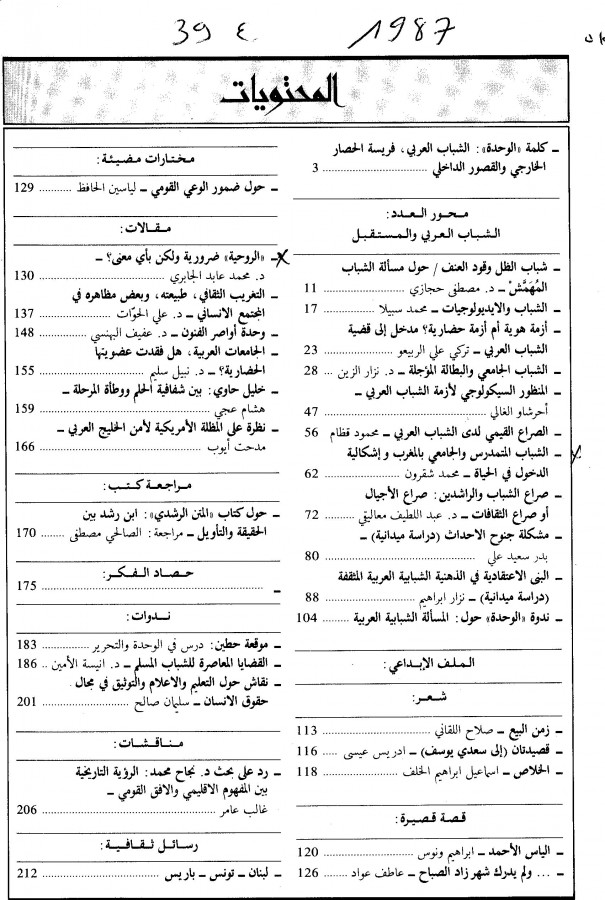 39 ع 1987
المحتويات
ـ كلمة «الوحدة»: الشباب العربي، فريسة الحصار
الخارجي والقصور الداخلي ............ 3
محور العدد:
الشباب العربي والمستقبل
ـ شباب الظل وقود العنف / حول مسألة الشباب
المُهَمَّشْ ـ د. مصطفى حجازي ............ 11
ـ الشباب والايديولوجيات ـ محمد سبيلا ............ 17
ـ أزمة هوية أم أزمة حضارية؟ مدخل إلى قضية
الشباب العربي ـ تركي علي الربيعو ............ 23
ـ الشباب الجامعي والبطالة المؤجلة ـ د. نزار الزين ... 28
ـ المنظور السيكولوجي لأزمة الشباب العربي ـ
أحرشاو الغالي ............ 47
ـ الصراع القيمي لدى الشباب العربي ـ محمود قظام 56
ـ الشباب المتمدرس والجامعي بالمغرب وإشكالية
الدخول في الحياة ـ محمد شقرون ............ 62
ـ صراع الشباب والراشدين: صراع الأجيال
أو صراع الثقافات ـ د. عبد اللطيف معاليقي ........ 72
ـ مشكلة جنوح الاحداث (دراسة ميدانية) ـ
بدر سعيد علي ............ 80
ـ البنى الاعتقادية في الذهنية الشبابية العربية المثقفة
(دراسة ميدانية) ـ نزار ابراهيم ............ 88
ـ ندوة «الوحدة» حول: المسألة الشبابية العربية .... 104
الملف الإبداعي:
شعر:
ـ زمن البيع ـ صلاح اللقاني ............ 113
ـ قصيدتان (إلى سعدي يوسف) ـ ادريس عيسى ..... 116
ـ الخلاص ـ اسماعيل ابراهيم الخلف ............ 118
قصة قصيرة:
ـ الياس الأحمد ـ ابراهيم ونوس ............ 120
ـ ... ولم يدرك شهر زاد الصباح ـ عاطف عواد .... 126
مختارات مضيئة:
ـ حول ضمور الوعي القومي ـ لياسين الحافظ .......... 129
مقالات:
ـ «الروحية» ضرورية ولكن بأي معنى؟ ـ
د. محمد عابد الجابري ............ 130
ـ التغريب الثقافي، طبيعته، وبعض مظاهره في
المجتمع الانساني ـ د. علي الحوّات ............ 137
ـ وحدة أواصر الفنون ـ د. عفيف البهنسي ........ 148
ـ الجامعات العربية، هل فقدت عضويتها
الحضارية؟ ـ د. نبيل سليم ............ 155
ـ خليل حاوي: بين شفافية الحلم ووطأة المرحلة ـ
هشام عجي ............ 159
ـ نظرة على المظلة الأمريكية لأمن الخليج العربي ـ
مدحت أيوب ............ 166
مراجعة كتب:
ـ حول كتاب «المتن الرشدي»: ابن رشد بين
الحقيقة والتأويل ـ مراجعة: الصالحي مصطفى .... 170
حصاد الفكر:
ـ ............ 175
ندوات:
ـ موقعة حطين: درس في الوحدة والتحرير ............ 183
ـ القضايا المعاصرة للشباب المسلم ـ د. انيسة الأمين .. 186
ـ نقاش حول التعليم والاعلام والتوثيق في مجال
حقوق الانسان ـ سليمان صالح ............ 201
مناقشات:
ـ رد على بحث د. نجاح محمد: الرؤية التاريخية
بين المفهوم الاقليمي والافق القومي ـ
غالب عامر ............ 206
رسائل ثقافية:
ـ لبنان ـ تونس ـ باريس ............ 212